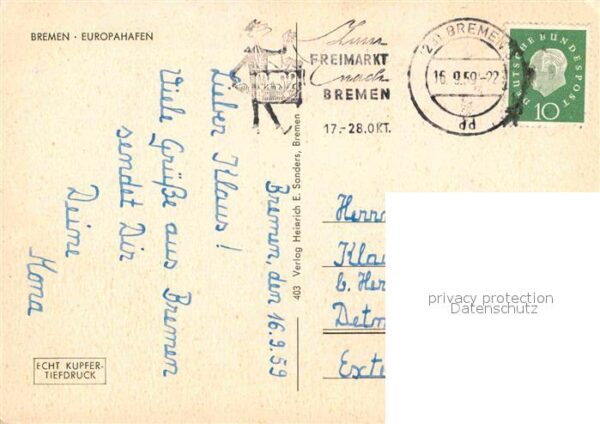 BREMEN - EUROPAHAFEN
Zum
FREIMARKT
nach
BREMEN
17.-28.OKT.
(23) BREMEN
16.9.59-22
pd
DEUTSCHE BUNDESPOST
10
Bremen, den 16.9.59
Lieber Klaus!
Viele Grüße aus Bremen
sendet Dir
Deine
Mona
403 Verlag Heinrich E. Sanders, Bremen
Herrn
Kla
b. Her
Detm
Exte
ECHT KUPFER-
TIEFDRUCK
privacy protection
Datenschutz